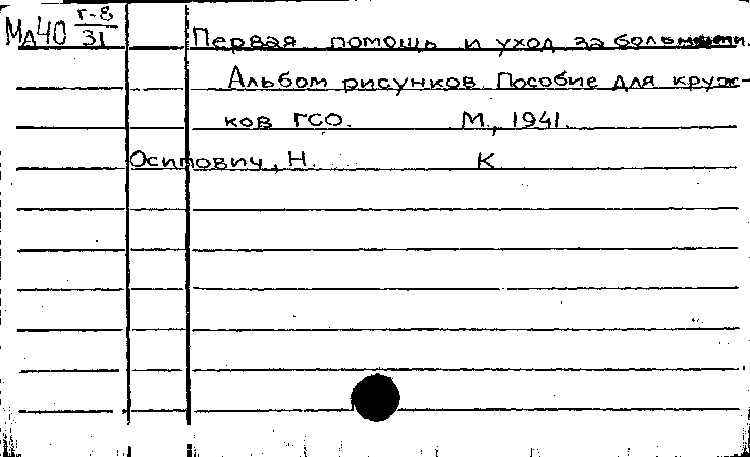 МД40 Г-8/31 Первая помощь и уход за больными.
Альбом рисунков. Пособие для круж-
ков ГСО. М., 1941.
Осипович, Н. К